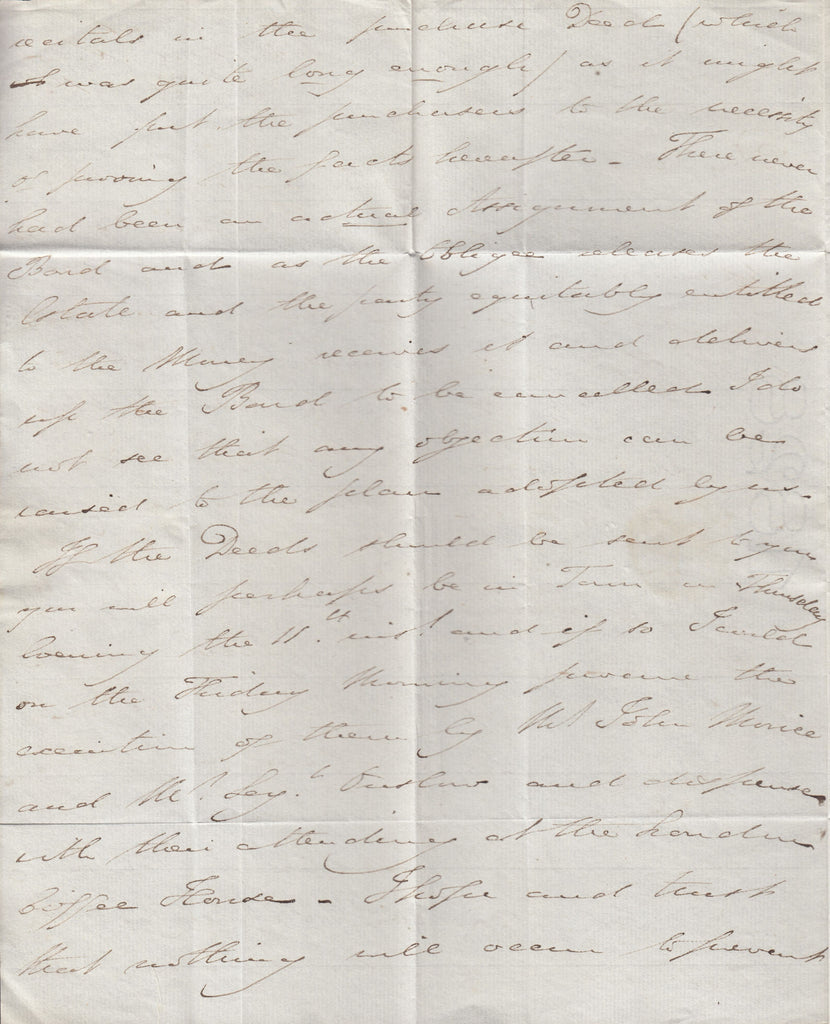 recitals in the purchase Deed (which
was quite long enough) as it might
have put the purchasers to the necessity
of proving the facts hereafter - There never
had been an actual Assignment of the
Bond and as the Obligee releases the
Estate and the party equitably entitled
to the Money receives it and delivers
up the Bond to be cancelled I do
not see that any objection can be
raised to the plan adopted by us.
If the Deeds should be sent to you
you will perhaps be in Town on Thursday
Evening the 11th inst and if so I could
on the Friday Morning procure the
execution of them by Mr John Morice
and Mr Serjt Onslow and dispense
with their attending at the London
Coffee House - I hope and trust
that nothing will occur to prevent